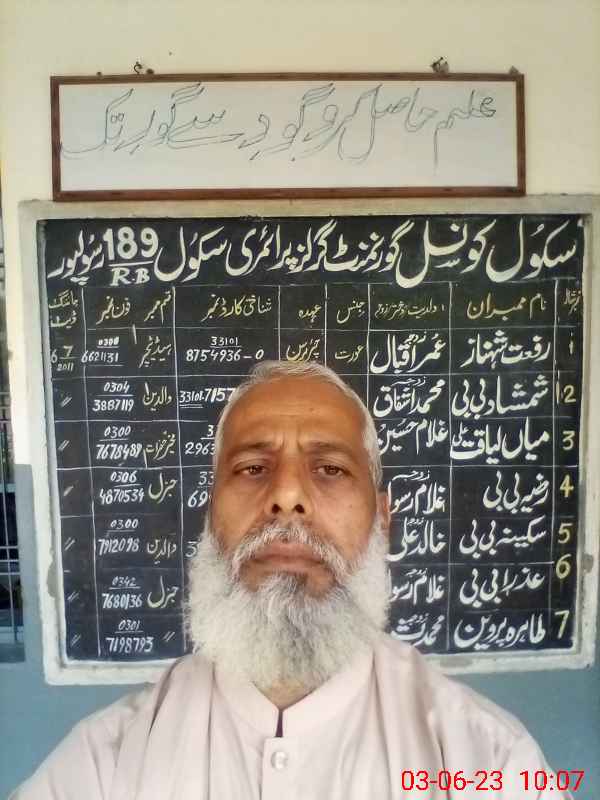 علیم حاصل کرو گود سے گور تک
سکول کونسل گورنمنٹ گرلز پرائمری سکول 189 R.B رسولپور
نمبر شمار نام ممبران ولدیت جنس عہدہ شناختی کارڈ نمبر قسم ممبر فون نمبر
1 رفعت شہناز زوجہ عمر اقبال عورت چیرپرسن 33101 8754936-0 ہیڈ ٹیچر 0300 6621131 6-7 2011
2 شمشاد بی بی زوجہ محمد اشفاق 33101-7157 والدین 0304 3887119 〃
3 میاں لیاقت علی غلام حسین 2963 مخیر حضرات 0300 7678489 〃
4 رضیہ بی بی زوجہ غلام رسول 33 69 جنرل 0306 4870534 〃
5 سکینہ بی بی زوجہ خالد علی والدین 0300 7912098 〃
6 عذرا بی بی زوجہ غلام رسول جنرل 0342 7680136 〃
7 طاہرہ پروین زوجہ محمد 〃 0301 7198793 〃
03-06-23 10:07